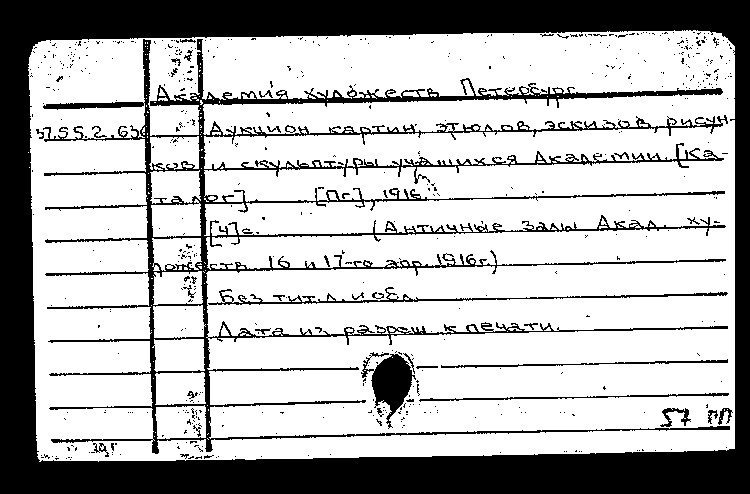 Академия художеств Петербург.
37.55.2.636 Аукцион картин, этюдов, эскизов, рисун-
ков и скульптуры учащихся Академии. [Ка-
талог]. [Пг.], 1916.
[4]с. (Античные залы Акад. ху-
дожеств 16 и 17-го апр. 1916г.)
Без тит. л. и обл.
Дата из разреш. к печати.
57 ПП